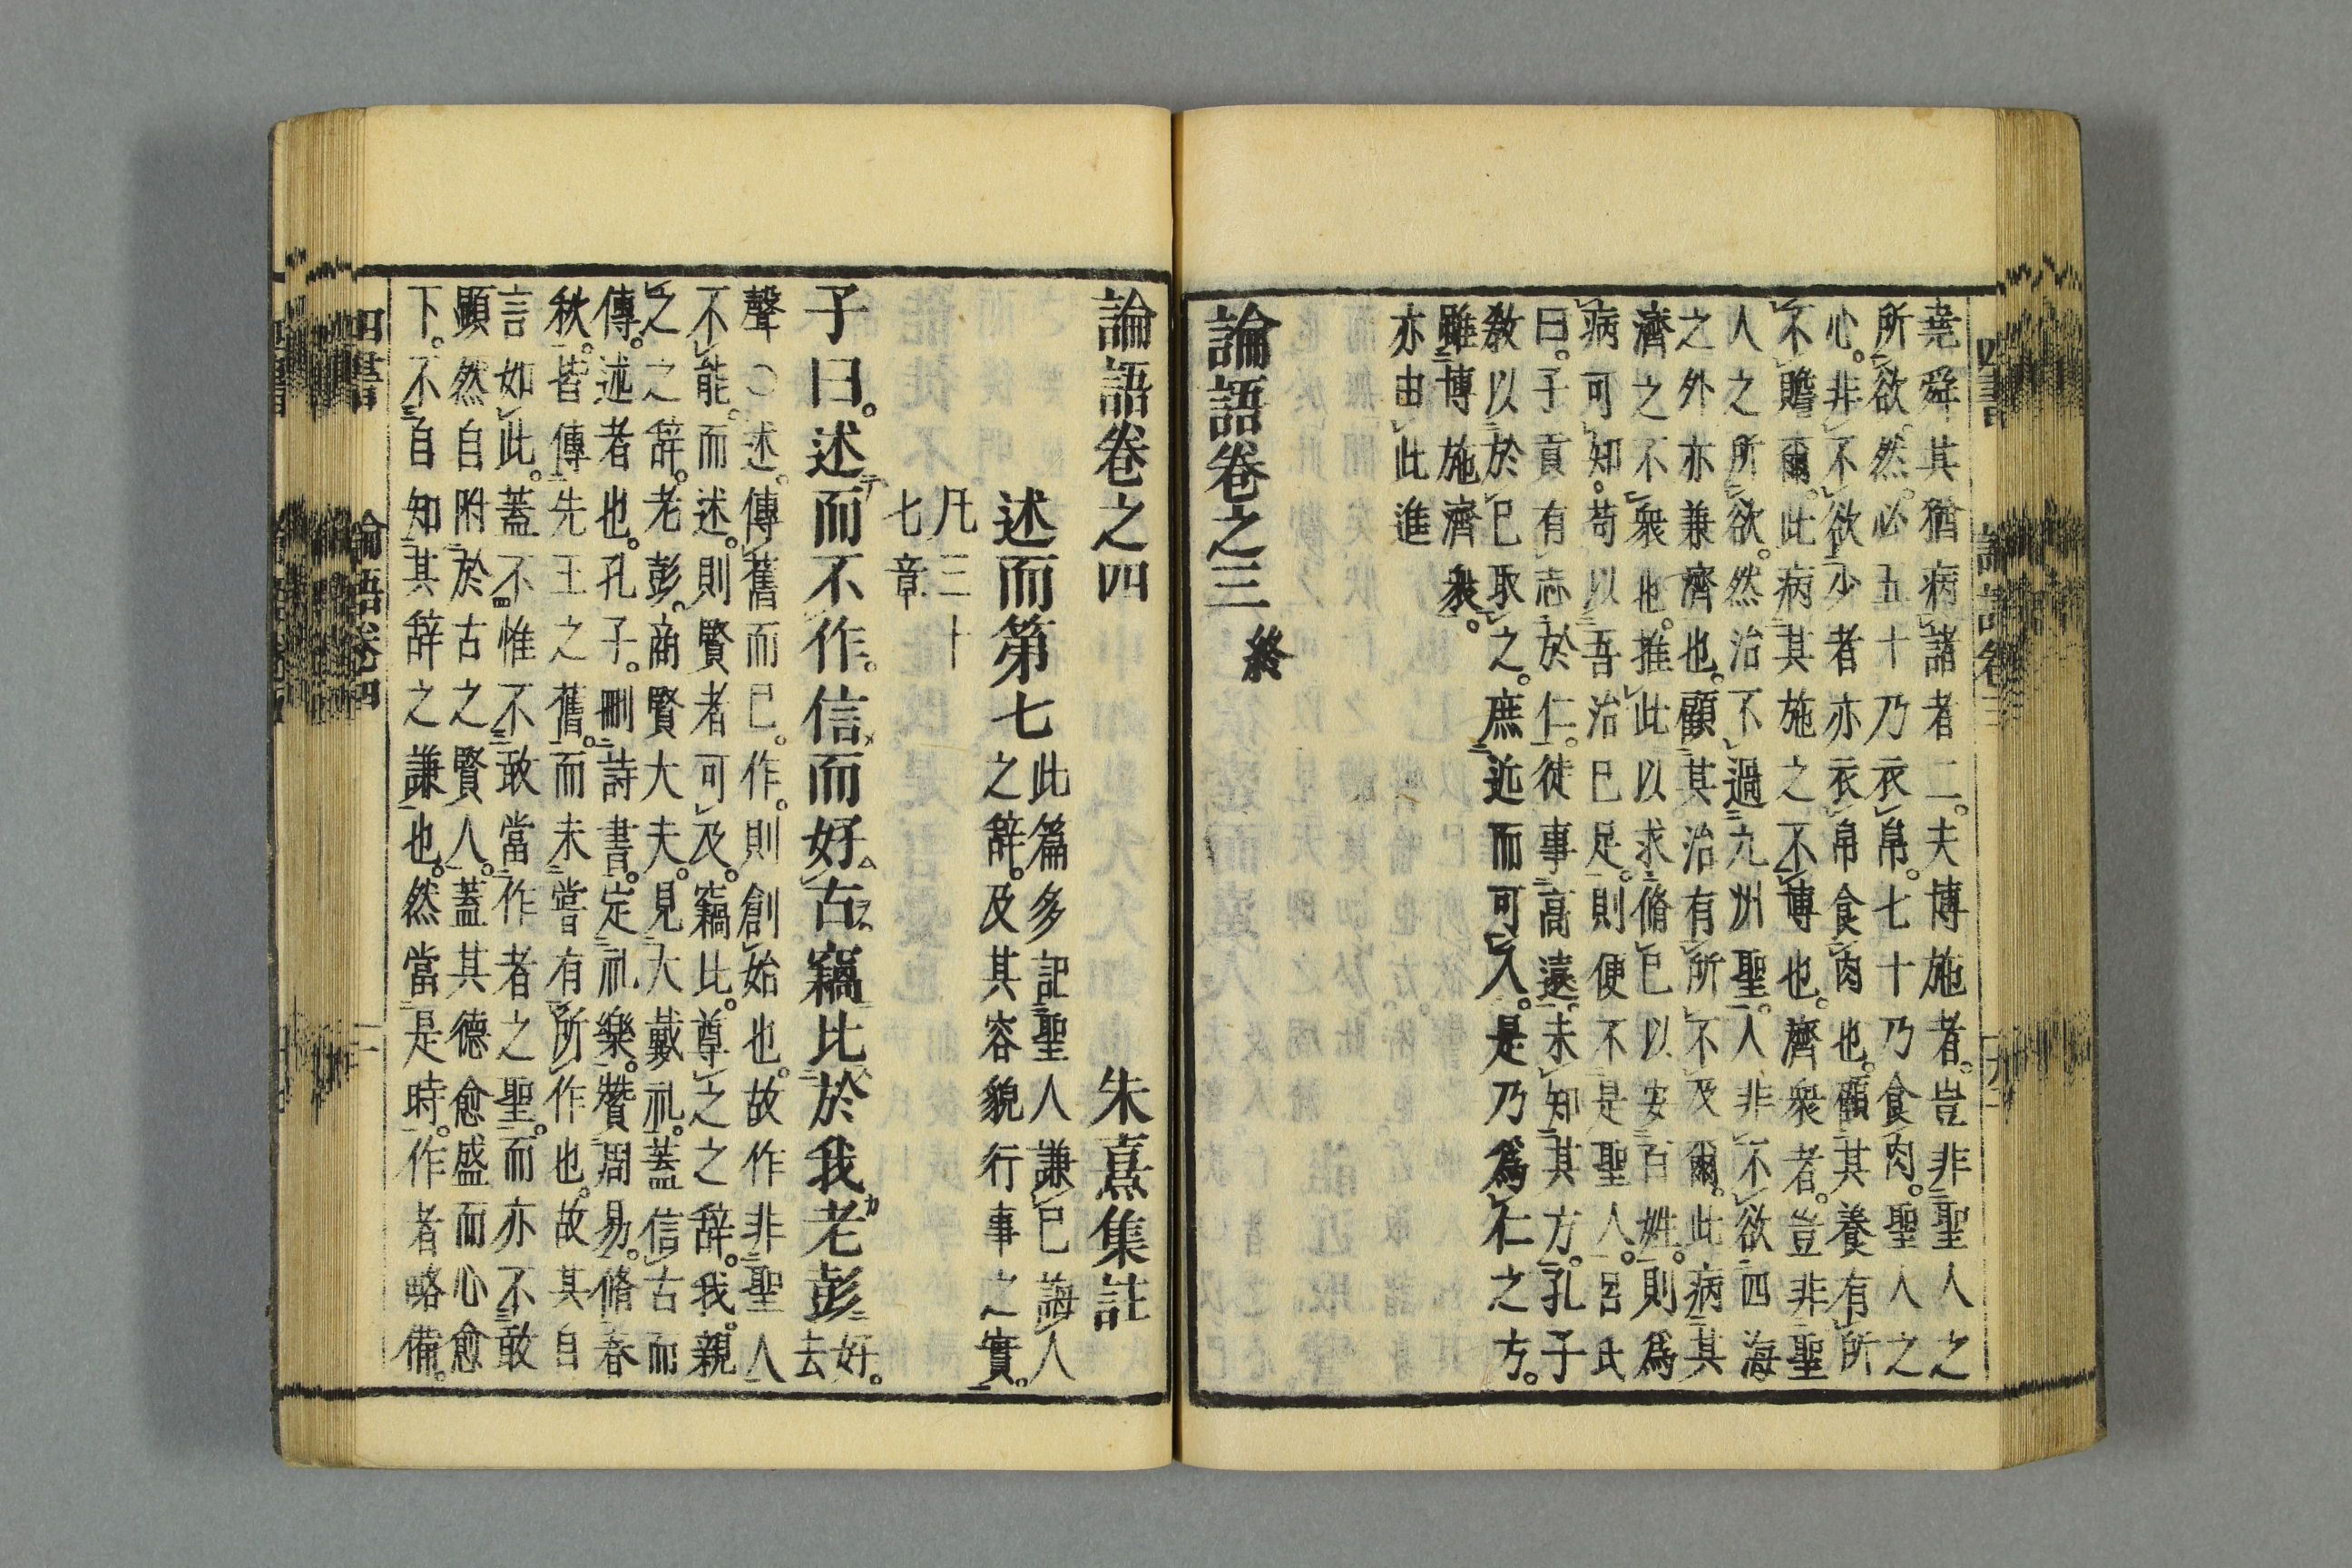 堯舜其猶病諸者二。夫博施者。豈非聖人之
所欲。然必五十乃衣帛。七十乃食肉。聖人之
心。非不欲少者亦衣帛食肉也。顧其養有所
不贍爾。此病其施之不博也。濟衆者。豈非聖
人之所欲。然治不過九州聖人非不欲四海
之外亦兼濟也。顧其治有所不及爾。此病其
濟之不衆也。推此以求脩已以安百姓。則爲
病可知。苟以吾治已足。則便不是聖人。呂氏
曰。子貢有志於仁。徒事高遠。未知其方。孔子
敎以於已取之。庶近而可入。是乃爲仁之方。
雖博施濟衆。
亦由此進
論語卷之三 終
論語卷之四 朱熹集註
述而第七 此篇多記聖人謙已誨人
之辭。及其容貌行事之實。
凡三十
七章
子曰。述テ而不作。信メ而好ヘ古ヲ竊比於我カ老彭 好。
去
聲○述。傳舊而已。作。則創始也。故作非聖人
不能。而述。則賢者可及。竊比。尊之之辭。我。親
之之辭。老彭。商賢大夫。見大戴礼。蓋信古而
傳。述者也。孔子。刪詩書。定礼樂。賛周易。脩春
秋。皆傳先王之舊。而未嘗有所作也。故其自
言如此。蓋不惟不敢當作者之聖。而亦不敢
顯然自附於古之賢人。蓋其德愈盛而心愈
下。不自知其辭之謙也。然當是時。作者略備。
四書 論語卷四 一